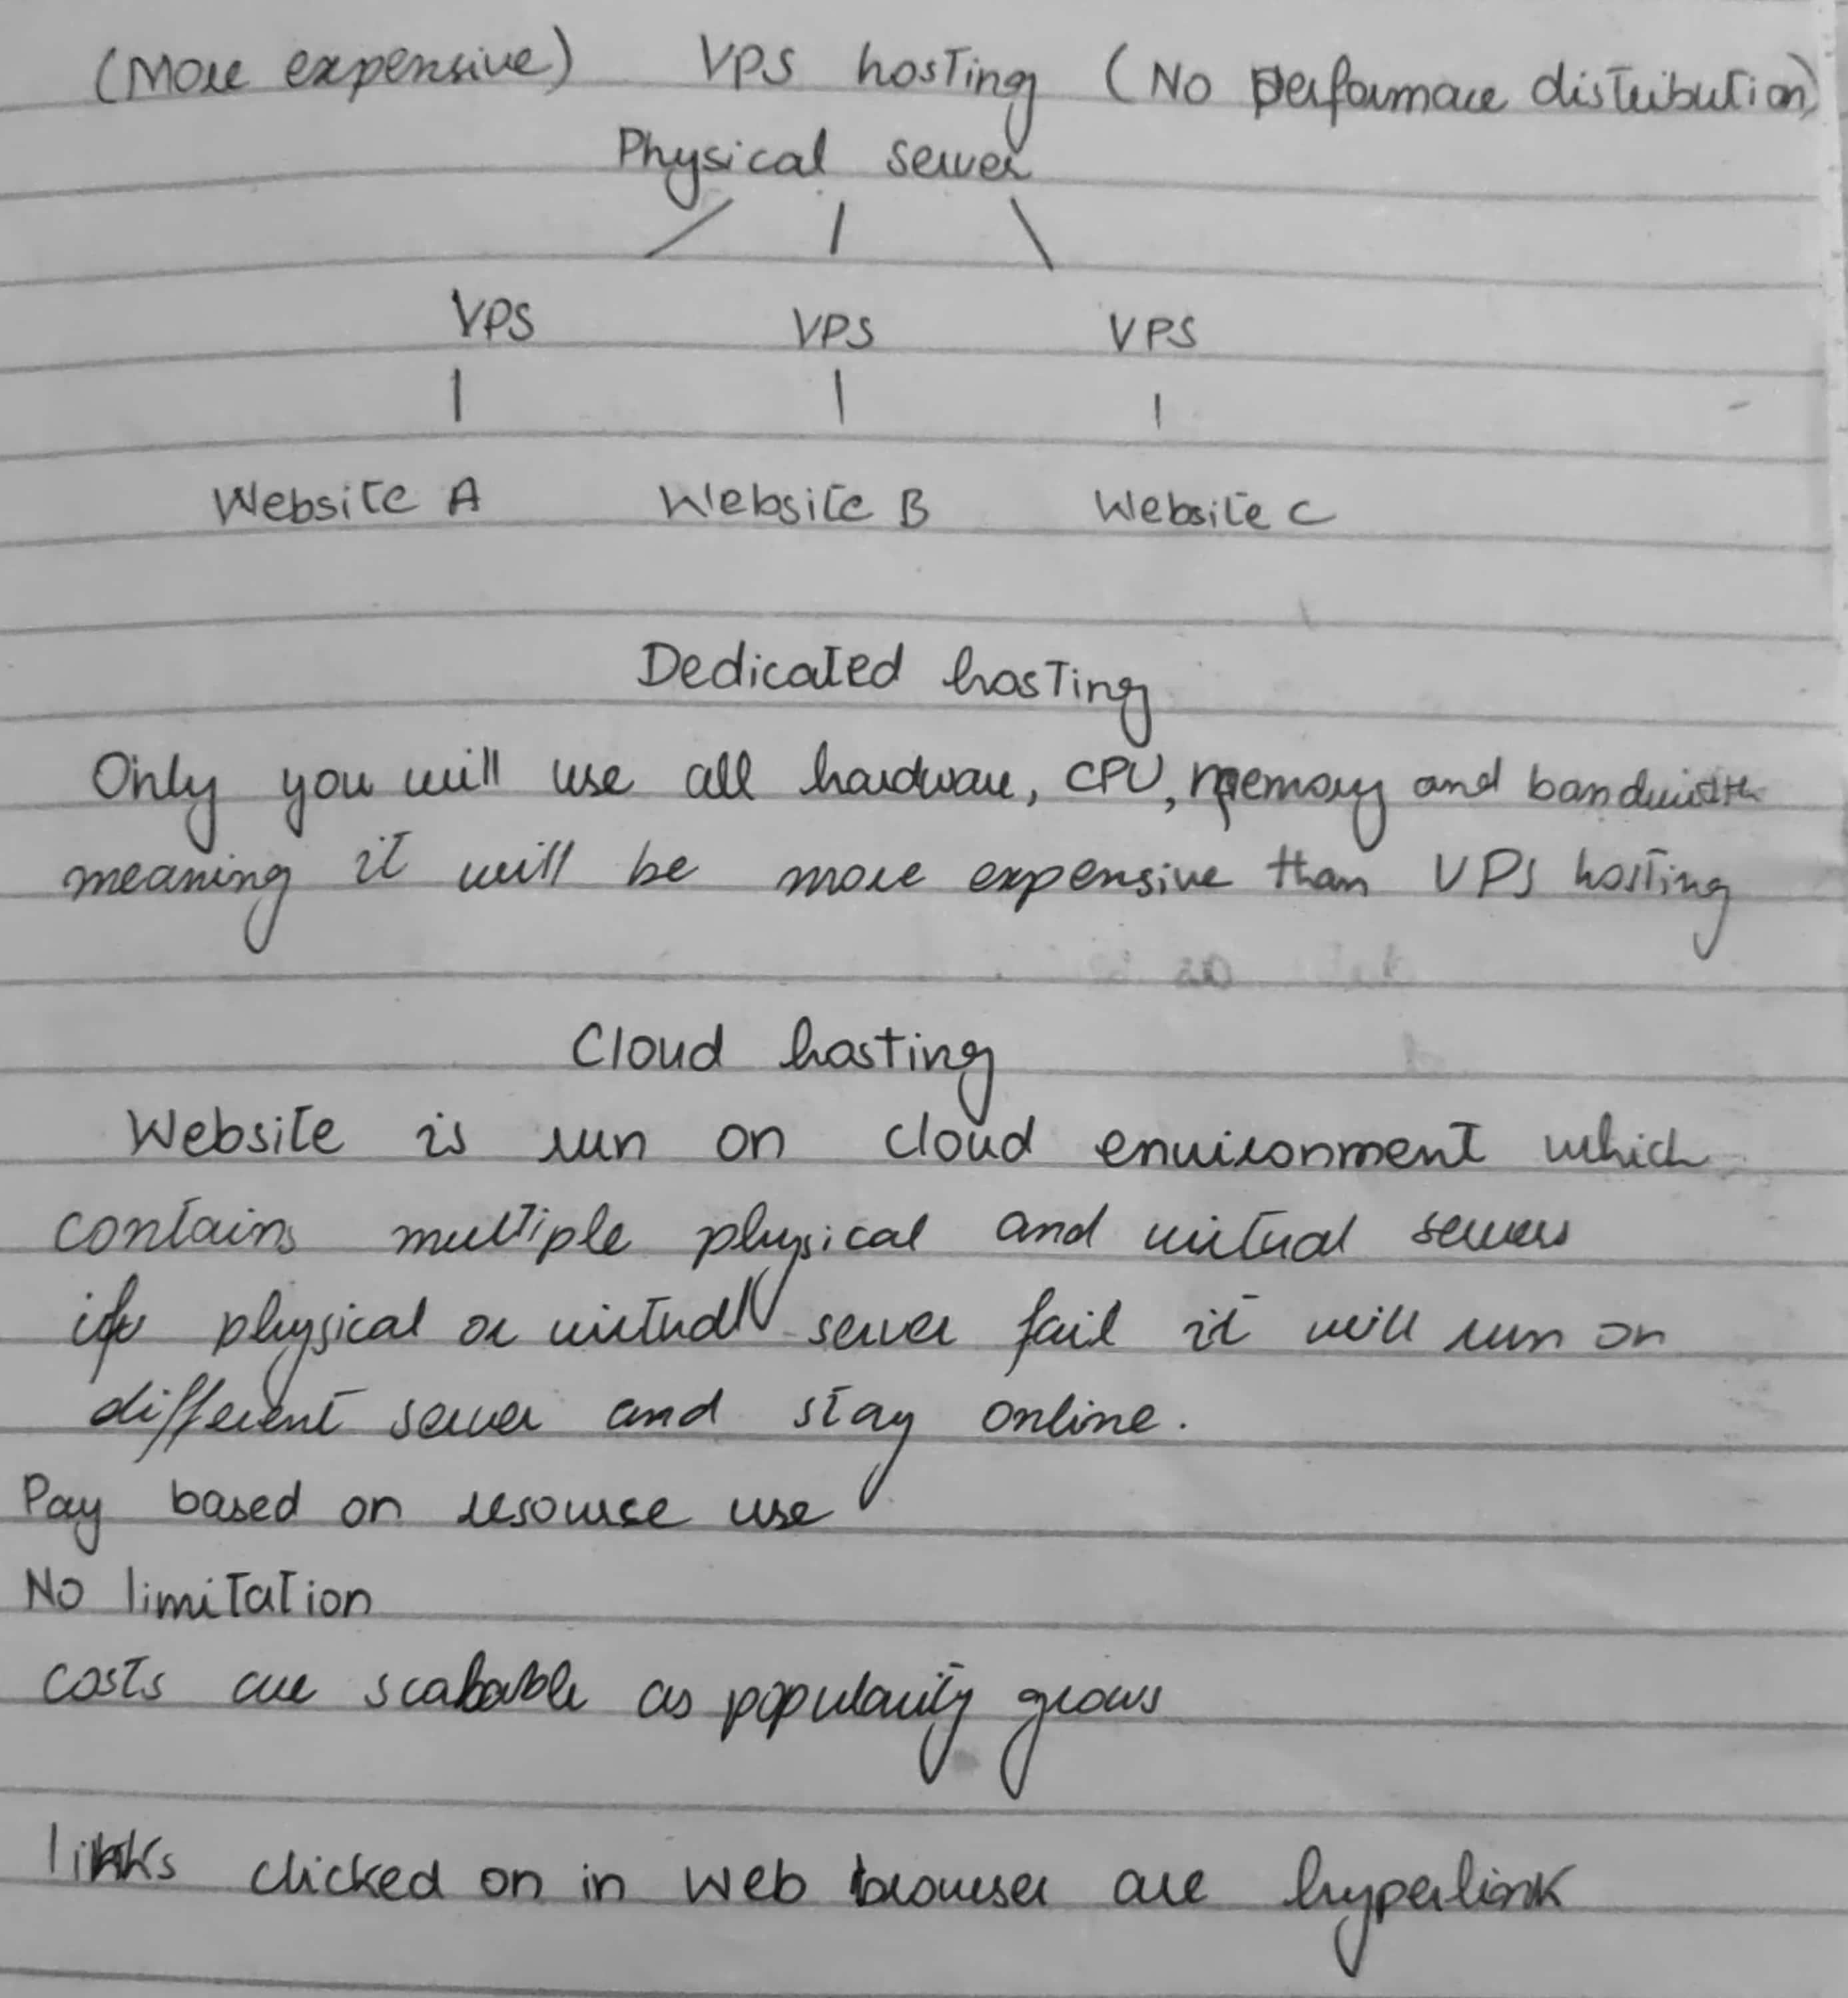 (More expensive) VPS hosting (No performace distribution)
Physical server
VPS VPS VPS
Website A Website B Website C
Dedicated hosting
Only you will use all hardware, CPU, memory and bandwidth
meaning it will be more expensive than VPS hosting
Cloud hosting
Website is run on cloud environment which
contains multiple physical and virtual servers
if physical or virtual server fail it will run on
different server and stay online.
Pay based on resource use
No limitation
costs are scalable as popularity grows
links clicked on in web browser are hyperlink